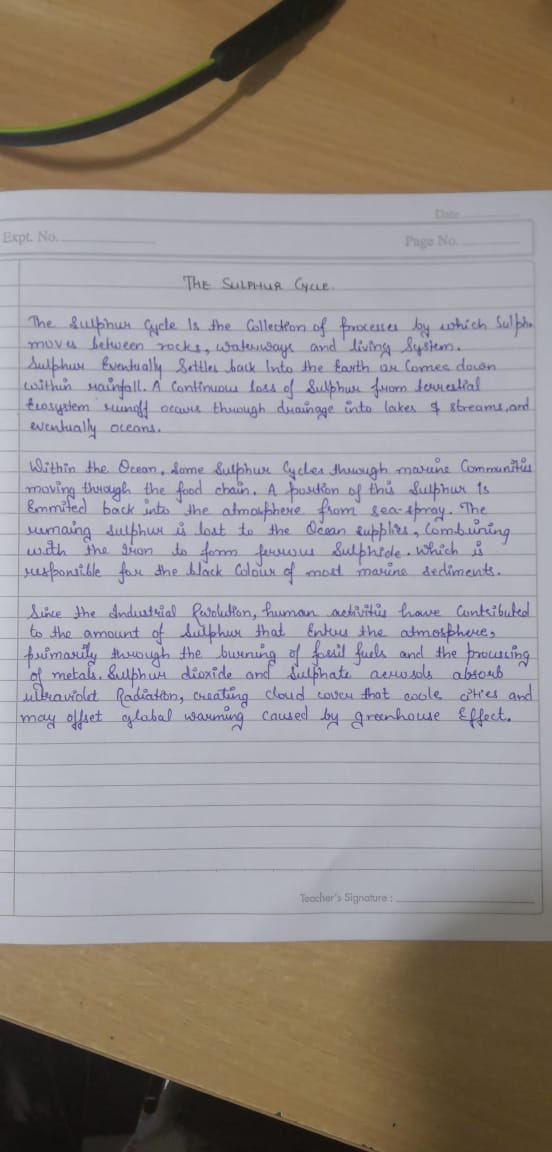 Date
Expt. No.
Page No.
THE SULPHUR CYCLE.
The Sulphur Cycle Is the Collection of processes by which Sulph
moves between rocks, waterways and living System.
Sulphur Eventually Settles back Into the Earth or Comes down
within rainfall. A Continuous loss of Sulphur from terrestial
Ecosystem runoff occurs through drainage into lakes & streams, and
eventually oceans.
Within the Ocean, Some Sulphur Cycles through marine Communities
moving through the food chain. A portion of this Sulphur Is
Emmited back into the atmosphere from sea-spray. The
remaing sulphur is lost to the Ocean supplies, Combining
with the iron to form ferrous Sulphide. Which is
responsible for the black Colour of most marine sediments.
Since the Industrial Revolution, human activities have Contributed
to the amount of Sulphur that Enters the atmosphere,
primarily through the burning of fossil fuels and the processing
of metals. Sulphur dioxide and Sulphate aerosols absorb
ultraviolet Radiation, creating cloud cover that cools cities and
may offset global warming caused by greenhouse Effect.
Teacher's Signature :